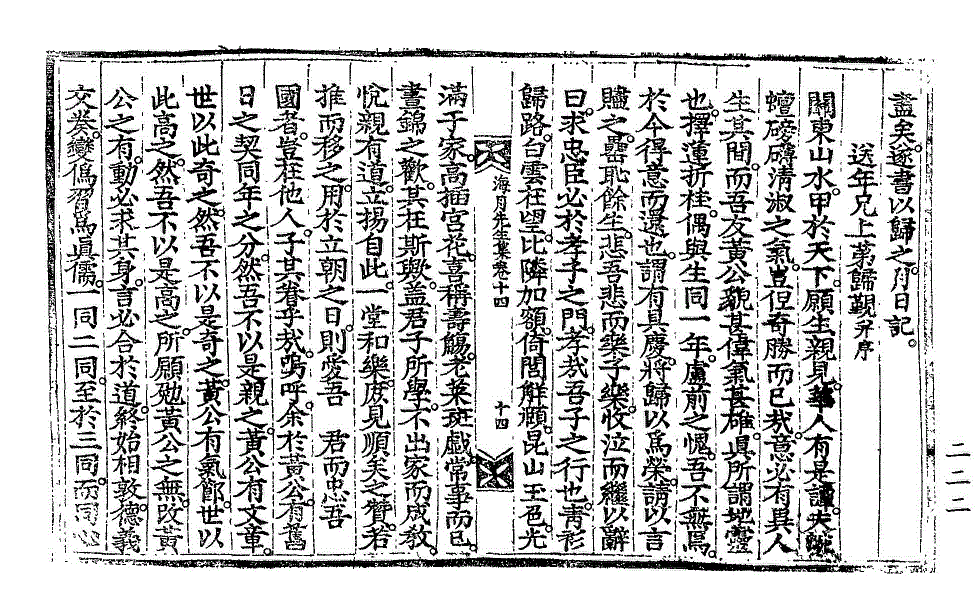 盡矣。遂書以歸之。月日記。
送年兄上第歸覲京序
關東山水。甲於天下。願生親見。華人有是語。夫蜿
蟺磅礴清淑之氣。豈但奇勝而已哉。意必有異人
生其間。而吾友黃公貌甚偉氣甚雄。眞所謂地靈
也。擇蓮折桂。偶與生同一年。盧前之愧。吾不無焉。
於今得意而還也。謂有具慶。將歸以爲榮。請以言
贐之。罍恥餘生。悲吾悲而樂子樂。收泣而繼以辭
曰。求忠臣必於孝子之門。孝哉吾子之行也。靑衫
歸路。白雲在望。比隣加額。倚閭解顏。昆山玉色。光
海月先生集卷十四
十四
滿于家。高揷宮花。喜稱壽觴。老萊斑戱。常事而已。
晝錦之歡。其在斯歟。蓋君子所學。不出家而成敎。
悅親有道。立揚自此。一堂和樂。庶見順矣之贊。若
推而移之。用於立朝之日。則愛吾　君而忠吾
國者。豈在他人。子其眷乎哉。嗚呼。余於黃公。有舊
日之契同年之分。然吾不以是親之。黃公有文章。
世以此奇之。然吾不以是奇之。黃公有氣節。世以
此高之。然吾不以是高之。所願勉黃公之無。改黃
公之有。動必求其身。言必合於道。終始相敦。德義
交發。變僞習爲眞儒。一同二同。至於三同。而同心
二二二